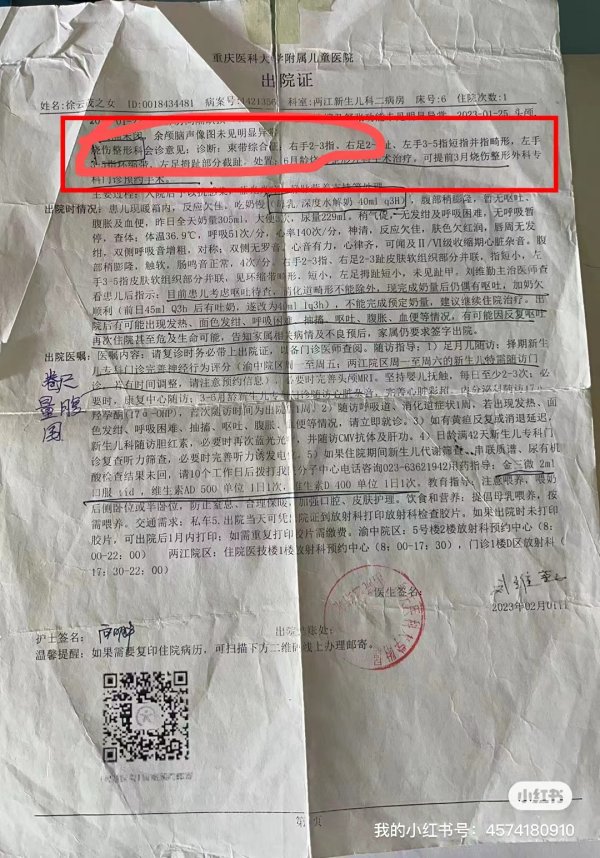 重庆医科大学附属儿童医院
出院证
姓名:徐云成之女 ID:0018434481 病案号:1421356 科室:两江新生儿科二病房 床号:6 住院次数:1
余颅脑声像图未见明显异常
烧伤整形科会诊意见:诊断:束带综合征:右手2-3指、右足2-趾、左手3-5指短指并指畸形,左手
3-5指环缩带,左足拇趾部分截趾。处置:6月龄 手术治疗。可提前3月烧伤整形外科专
科门诊预约手术。
出院时情况:患儿现暖箱内,反应欠佳,吃奶慢(母乳 深度水解奶 40ml q3H),腹部稍膨隆,暂无呕吐、
腹胀及血便,昨日全天奶量305ml,大便3次,尿量229ml,稍气促,无发绀及呼吸困难,无呼吸暂
停,查体:体温36.9℃,呼吸51次/分,心率140次/分,神清,反应欠佳,肤色欠红润,唇周无发
绀,双侧呼吸音增粗,对称,双侧无罗音,心音有力,心律齐,可闻及II/VI级收缩期心脏杂音,腹
部稍膨隆,触软,肠鸣音正常,4次/分,右手2-3指、右足2-3趾皮肤软组织部分并联,指短小,左
手3-5指皮肤软组织部分并联,见环缩畸形,短小,左足拇趾短小,未见趾甲。刘维勤主治医师查
看患儿后指示:目前患儿考虑呕吐待查,消化道畸形不能除外,现完成奶量后仍偶有呕吐,加奶欠
顺利(前日45ml Q3h 后有吐奶,遂改为40ml q3h),不能完成预定奶量,建议继续住院治疗。出
院后有可能出现发热、面色发绀、呼吸困难、抽搐、呕吐、腹胀、血便等情况,有可能因反复呕吐
再次住院甚至危及生命可能,告知家属相关病情及不良预后,家属仍要求签字出院。
出院医嘱:医嘱内容:请复诊时务必带上出院证,以备门诊医师查阅。随访指导:1)足月儿随访:择期新生
儿专科门诊完善神经行为评分(渝中院区周一至周五;两江院区周一至周六的新生儿特需随访门
诊,若有时间调整,请注意预约信息),必要时完善头颅MRI。坚持婴儿抚触,每日至少2-3次;必
要时,康复中心随访;
羟孕酮(17α-OHP),首次随访时间为出院1周)2)随访呼吸道、消化道症状1周,若出现发热、面
色发绀、呼吸困难、抽搐、呕吐、腹胀、血便等情况,请立即就诊。3)如有黄疸反复或消退延迟,
新生儿科随访胆红素,必要时再次蓝光光疗,并随访CMV抗体及肝功。4)日龄满42天新生儿专科门
诊复查听力筛查,必要时完善听力诱发电位。5)如果住院期间新生儿代谢筛查、串联质谱、尿有机
酸检查结果未回,请10个工作日后拨打我院分子中心电话咨询023-63621942用药指导:金三微 2ml
口服 tid,维生素AD 500 单位 1日1次,维生素D 400 单位 1日1次。教育指导:注意喂养,喂奶
后侧卧位或半卧位,防止窒息、合理保暖,加强口腔、皮肤护理。饮食和营养:提倡母乳喂养,按
需喂养。交通需求:私车5.出院当天可凭出院证到放射科打印放射科检查胶片。如果出院时未打印
胶片,可出院后1月内打印;如需重复打印胶片需缴费。渝中院区:5号楼2楼放射科预约中心(8:
00-22:00) 两江院区:住院医技楼1楼放射科预约中心(8:00-17:30),门诊1楼D区放射科(
17:30-22:00)
卷尺
量腹
围
医生签名:
2023年02月01日
护士签名: 出院结账处:
温馨提醒:如果需要复印住院病历,可扫描下方二维码线上办理邮寄。
小红书
我的小红书号:4574180910